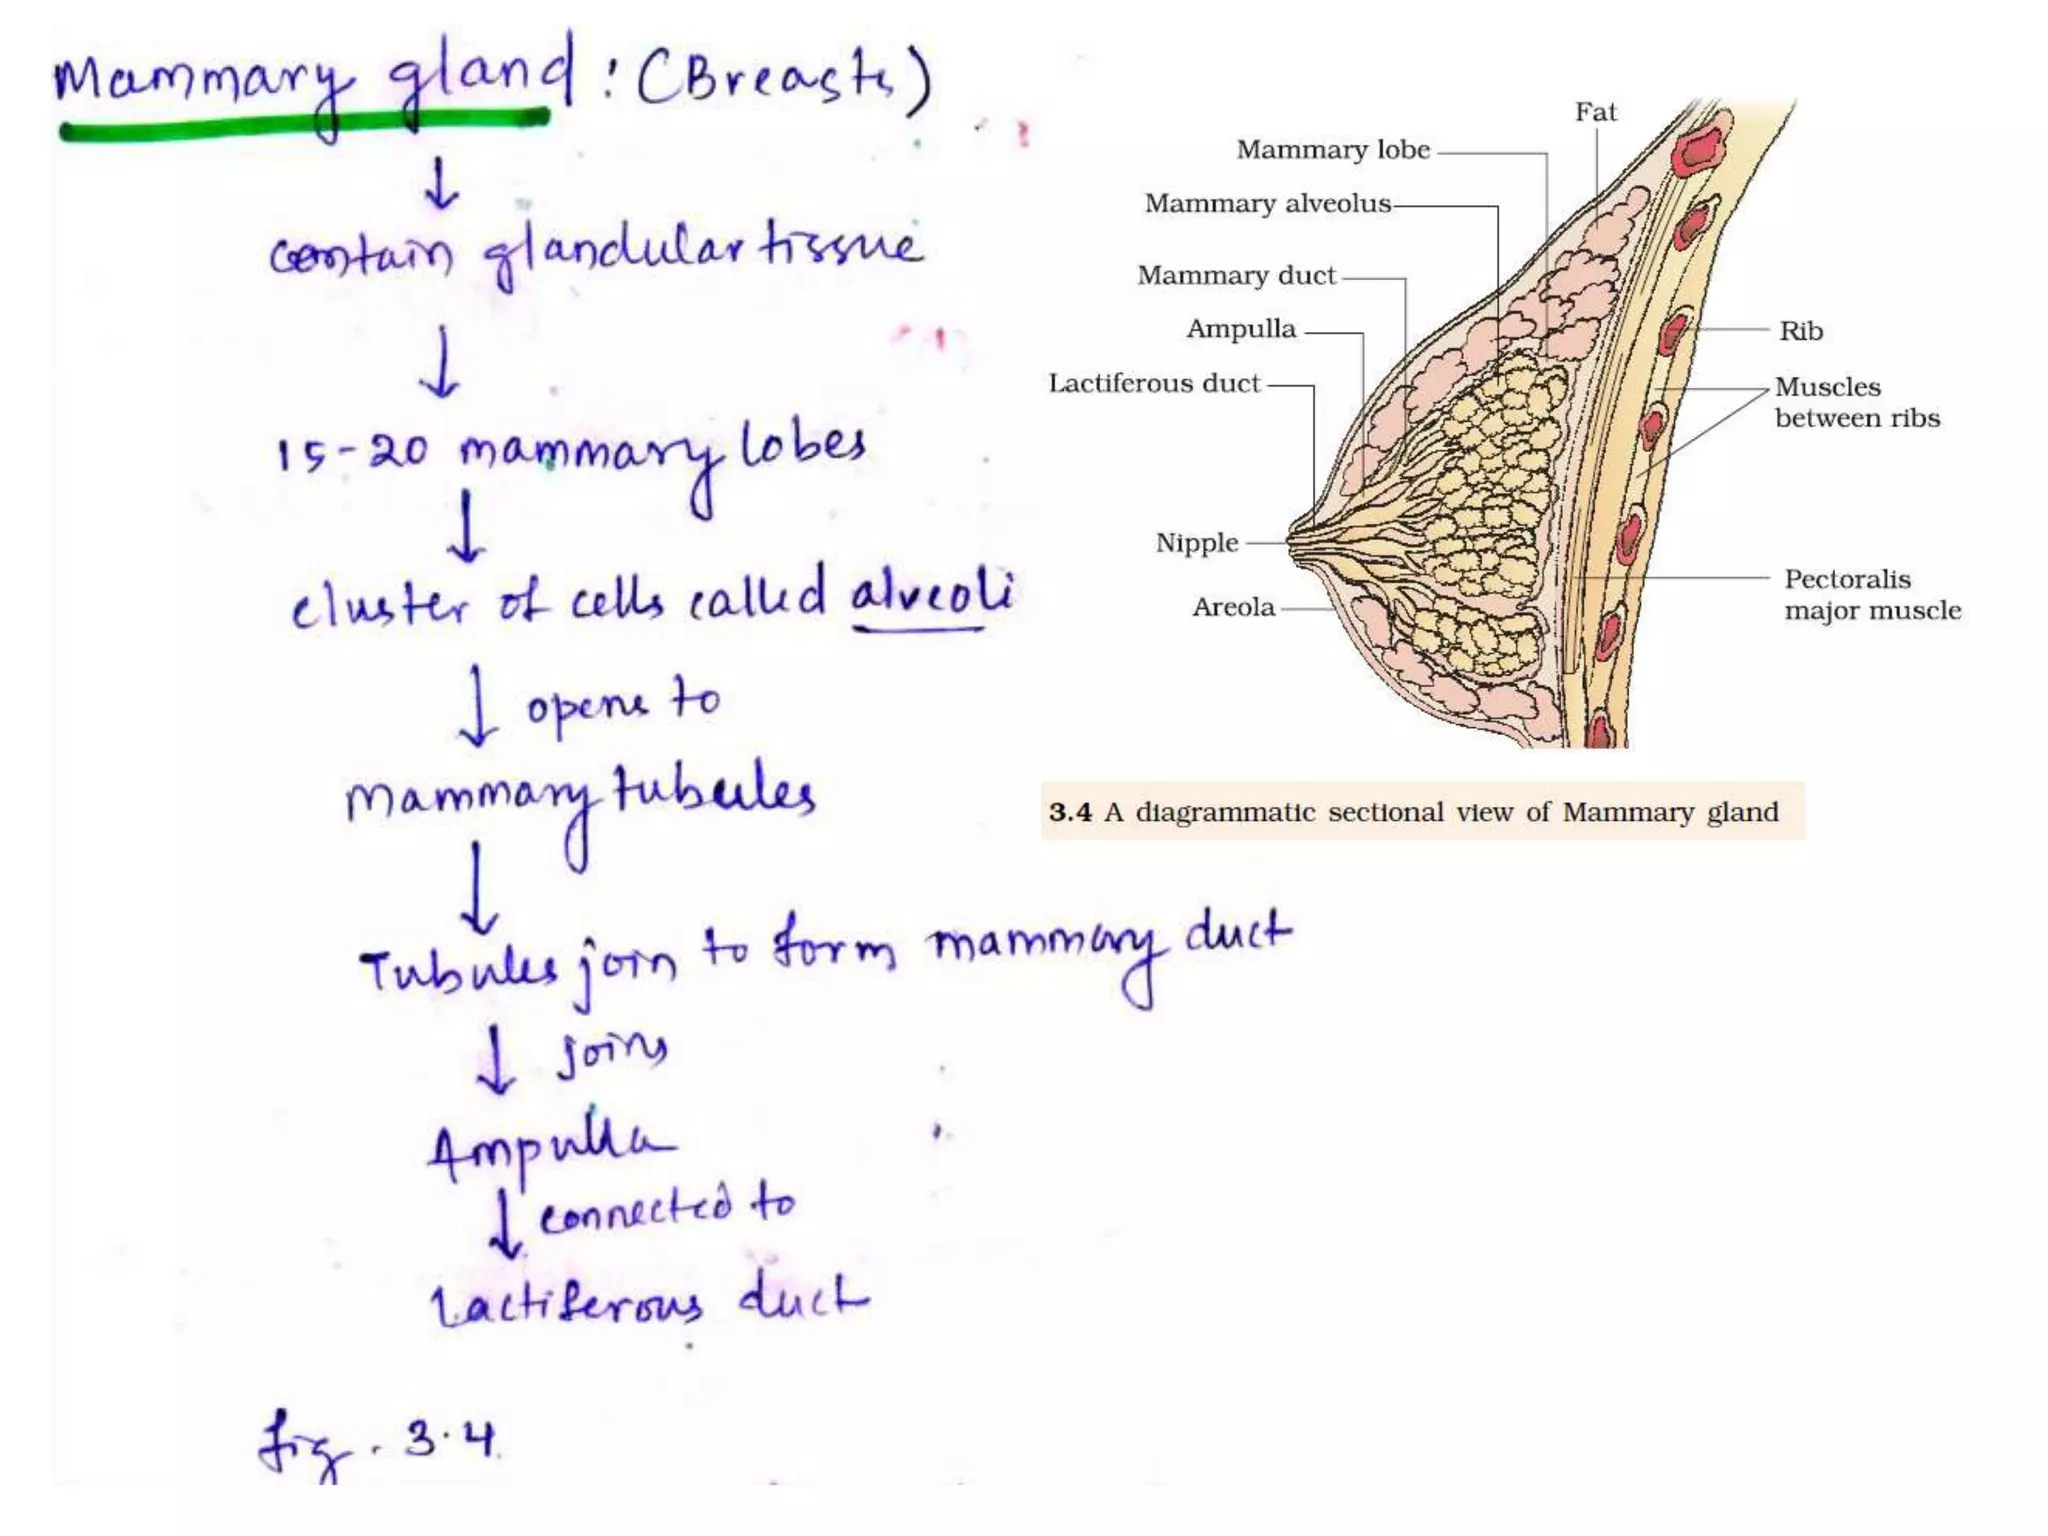 Mammary gland : (Breasts)
↓
contain glandular tissue
↓
15-20 mammary lobes
↓
cluster of cells called alveoli
↓ opens to
Mammary tubules
↓
Tubules join to form mammary duct
↓ joins
Ampulla
↓ connected to
Lactiferous duct
fig. 3.4
Fat
Mammary lobe
Mammary alveolus
Mammary duct
Ampulla
Lactiferous duct
Nipple
Areola
Rib
Muscles
between ribs
Pectoralis
major muscle
3.4 A diagrammatic sectional view of Mammary gland